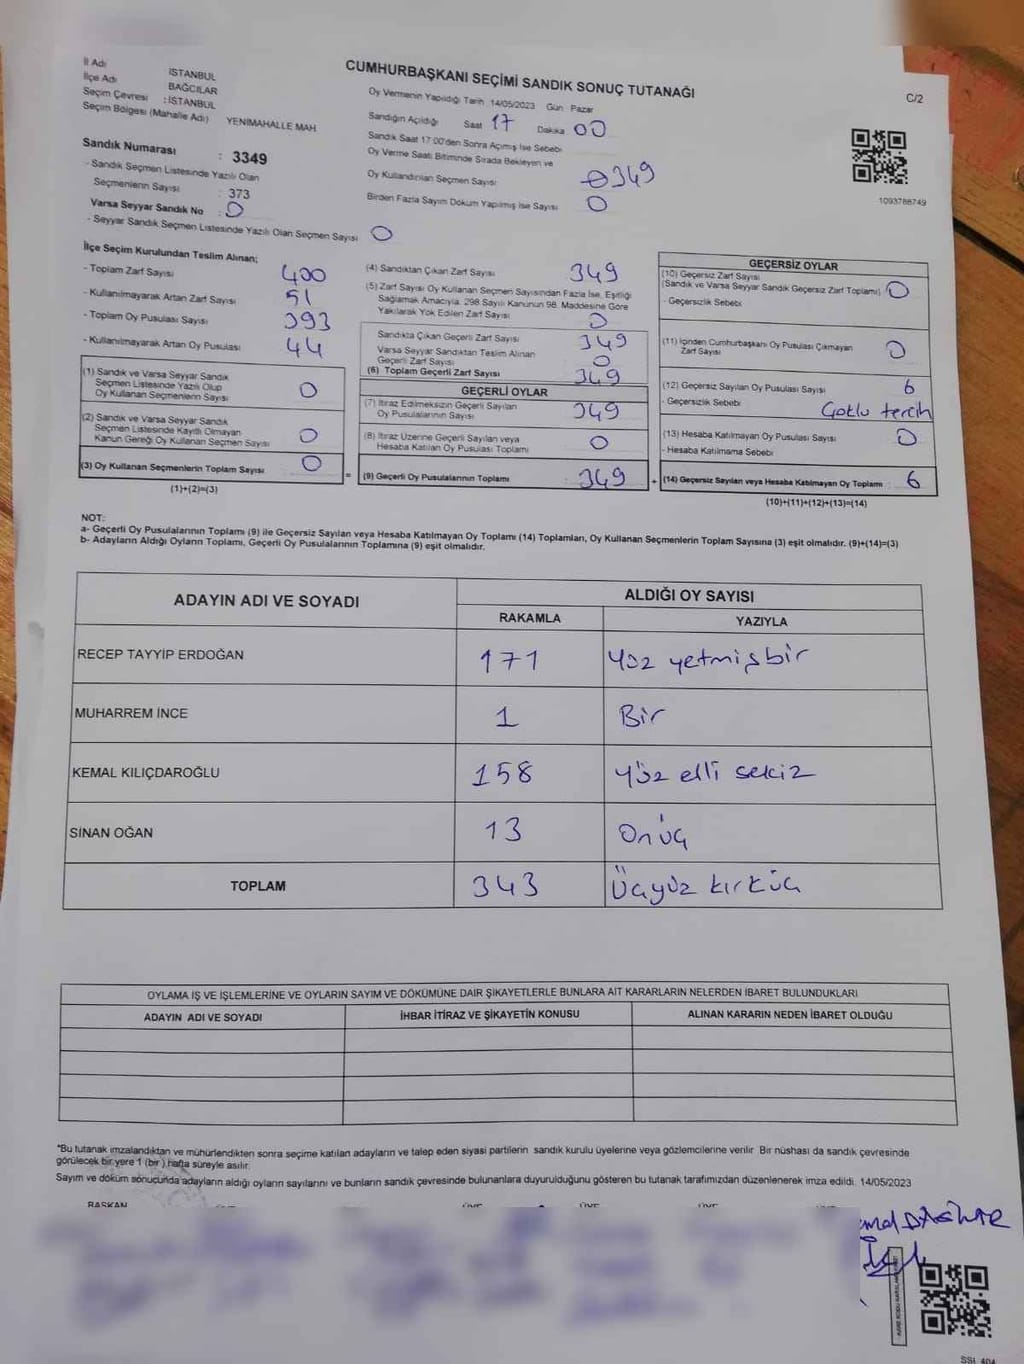 İl Adı İSTANBUL
İlçe Adı BAĞCILAR
Seçim Çevresi : İSTANBUL
Seçim Bölgesi (Mahalle Adı) YENİMAHALLE MAH.
Sandık Numarası : 3349
- Sandık Seçmen Listesinde Yazılı Olan
Seçmenlerin Sayısı : 373
Varsa Seyyar Sandık No : 0
- Seyyar Sandık Seçmen Listesinde Yazılı Olan Seçmen Sayısı 0
CUMHURBAŞKANI SEÇİMİ SANDIK SONUÇ TUTANAĞI
C/2
Oy Vermenin Yapıldığı Tarih 14/05/2023 Gün Pazar
Sandığın Açıldığı Saat 17 Dakika 00
Sandık Saat 17:00'den Sonra Açımış İse Sebebi
Oy Verme Saati Bitiminde Sırada Bekleyen ve
Oy Kullandırılan Seçmen Sayısı 349
Birden Fazla Sayım Döküm Yapılmış İse Sayısı 0
1093788749
İlçe Seçim Kurulundan Teslim Alınan;
- Toplam Zarf Sayısı 400
- Kullanılmayarak Artan Zarf Sayısı 51
- Toplam Oy Pusulası Sayısı 393
- Kullanılmayarak Artan Oy Pusulası 44
(1) Sandık ve Varsa Seyyar Sandık
Seçmen Listesinde Yazılı Olup
Oy Kullanan Seçmenlerin Sayısı 0
(2) Sandık ve Varsa Seyyar Sandık
Seçmen Listesinde Kayıtlı Olmayan
Kanun Gereği Oy Kullanan Seçmen Sayısı 0
(3) Oy Kullanan Seçmenlerin Toplam Sayısı 0
(1)+(2)=(3)
(4) Sandıktan Çıkan Zarf Sayısı 349
(5) Zarf Sayısı Oy Kullanan Seçmen Sayısından Fazla İse, Eşitliği
Sağlamak Amacıyla, 298 Sayılı Kanunun 98. Maddesine Göre
Yakılarak Yok Edilen Zarf Sayısı 0
Sandıkta Çıkan Geçerli Zarf Sayısı 349
Varsa Seyyar Sandıktan Teslim Alınan
Geçerli Zarf Sayısı 0
(6) Toplam Geçerli Zarf Sayısı 349
GEÇERLİ OYLAR
(7) İtiraz Edilmeksizin Geçerli Sayılan
Oy Pusulalarının Sayısı 349
(8) İtiraz Üzerine Geçerli Sayılan veya
Hesaba Katılan Oy Pusulası Toplamı 0
= (9) Geçerli Oy Pusulalarının Toplamı : 349 +
GEÇERSİZ OYLAR
(10) Geçersiz Zarf Sayısı
(Sandık ve Varsa Seyyar Sandık Geçersiz Zarf Toplamı) 0
- Geçersizlik Sebebi
(11) İçinden Cumhurbaşkanı Oy Pusulası Çıkmayan
Zarf Sayısı 0
(12) Geçersiz Sayılan Oy Pusulası Sayısı 6
- Geçersizlik Sebebi Çoklu tercih
(13) Hesaba Katılmayan Oy Pusulası Sayısı 0
- Hesaba Katılmama Sebebi
(14) Geçersiz Sayılan veya Hesaba Katılmayan Oy Toplamı : 6
(10)+(11)+(12)+(13)=(14)
NOT:
a- Geçerli Oy Pusulalarının Toplamı (9) ile Geçersiz Sayılan veya Hesaba Katılmayan Oy Toplamı (14) Toplamları, Oy Kullanan Seçmenlerin Toplam Sayısına (3) eşit olmalıdır. (9)+(14)=(3)
b- Adayların Aldığı Oyların Toplamı, Geçerli Oy Pusulalarının Toplamına (9) eşit olmalıdır.
ADAYIN ADI VE SOYADI ALDIĞI OY SAYISI
RAKAMLA YAZIYLA
RECEP TAYYİP ERDOĞAN 171 Yüz yetmişbir
MUHARREM İNCE 1 Bir
KEMAL KILIÇDAROĞLU 158 Yüz elli sekiz
SİNAN OĞAN 13 Onüç
TOPLAM 343 Üçyüz kırküç
OYLAMA İŞ VE İŞLEMLERİNE VE OYLARIN SAYIM VE DÖKÜMÜNE DAİR ŞİKAYETLERLE BUNLARA AİT KARARLARIN NELERDEN İBARET BULUNDUKLARI
ADAYIN ADI VE SOYADI İHBAR İTİRAZ VE ŞİKAYETİN KONUSU ALINAN KARARIN NEDEN İBARET OLDUĞU
*Bu tutanak imzalandıktan ve mühürlendikten sonra seçime katılan adayların ve talep eden siyasi partilerin sandık kurulu üyelerine veya gözlemcilerine verilir. Bir nüshası da sandık çevresinde
görülecek bir yere 1 (bir) hafta süreyle asılır.
Sayım ve döküm sonucunda adayların aldığı oyların sayılarını ve bunların sandık çevresinde bulunanlara duyurulduğunu gösteren bu tutanak tarafımızdan düzenlenerek imza edildi. 14/05/2023
BAŞKAN ÜYE ÜYE ÜYE ÜYE